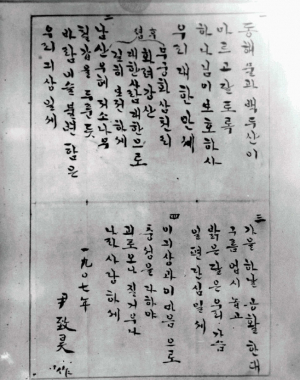 동희물과 백두산이
마르고 달토록
하나님이 보호하사
우리 대한 만세
무궁화 삼천리
화려강산
대한사람 대한으로
길히 보전하세
二
남산 우헤 저 소나무
철갑을 두른 듯
바람이슬 불변함은
우리 긔상일세
三
가을 하날 공활한대
구름 업시 놉고
밝은 달은 우리 가슴
일편단심일세
四
이 긔상과 이 마음으로
충성을 다하야
괴로오나 질거우나
나라 사랑하세
一九〇七年
尹致昊
作